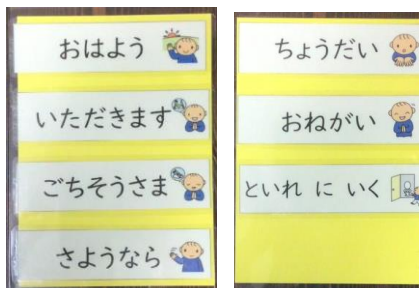 おはよう
いただきます
ごちそうさま
さようなら
ちょうだい
おねがい
といれ に いく